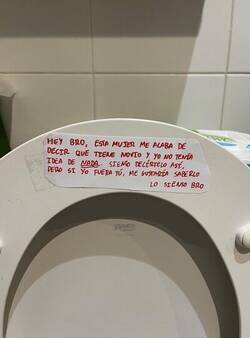 HEY BRO, ESTA MUJER ME ACABA DE
DECIR QUE TIENE NOVIO Y YO NO TENÍA
IDEA DE NADA. SIENTO DECÍRTELO ASÍ,
PERO SI YO FUERA TÚ, ME GUSTARÍA SABERLO
LO SIENTO BRO